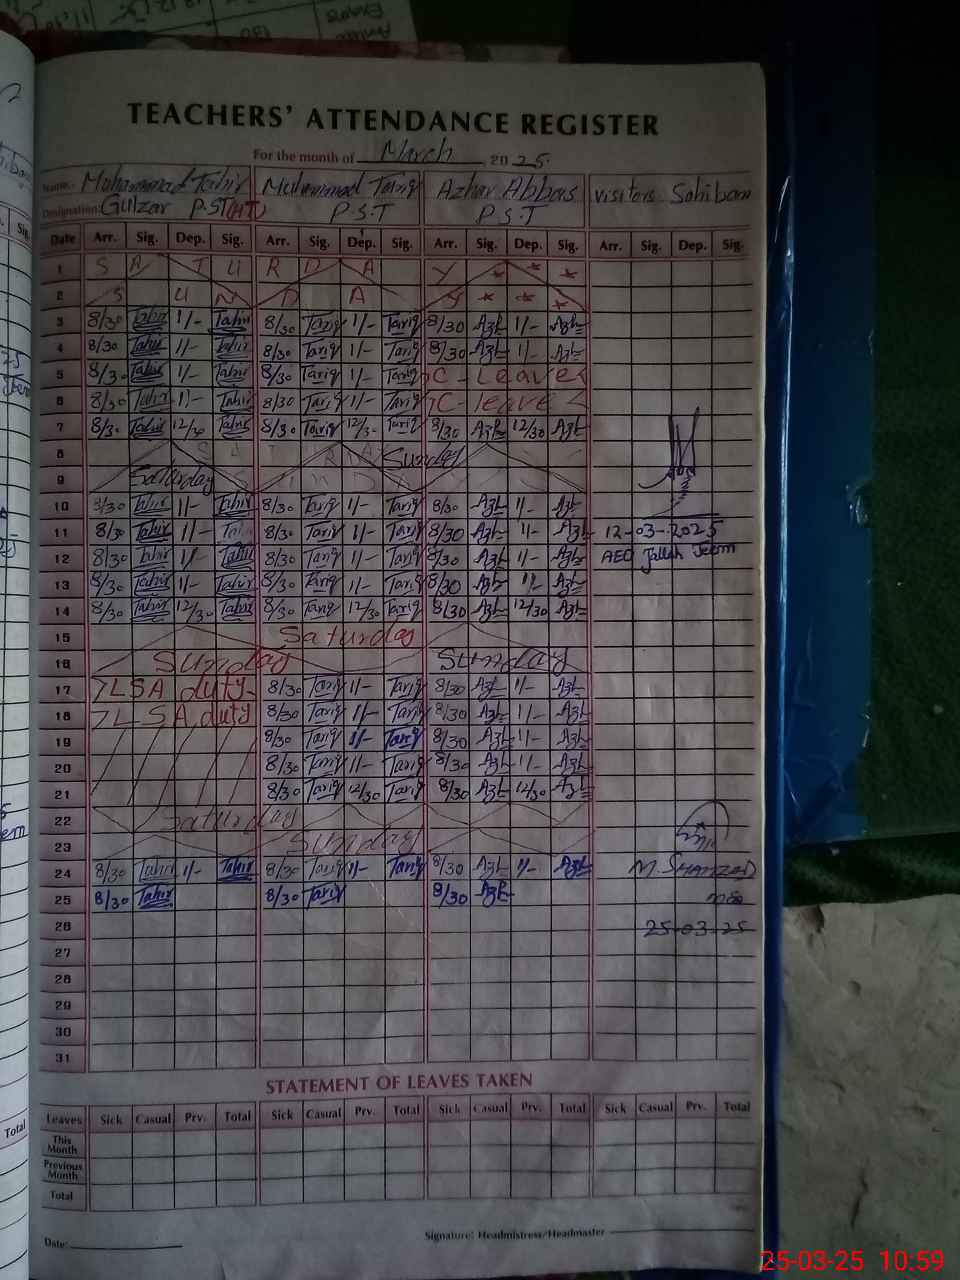 TEACHERS' ATTENDANCE REGISTER
For the month of March, 20 25.
Name:- Mohammad Tahir Muhammad Tariq Azhar Abbas Visitors Sahiban
Designation: Gulzar P.S.T(HT) P.S.T P.S.T
Date Arr. Sig. Dep. Sig. Arr. Sig. Dep. Sig. Arr. Sig. Dep. Sig. Arr. Sig. Dep. Sig.
1 S A T U R D A Y * * *
2 S U N D A Y * * *
3 8/30 Tahir 1/- Tahir 8/30 Tariq 1/- Tariq 8/30 Azh 1/- Azh
4 8/30 Tahir 1/- Tahir 8/30 Tariq 1/- Tariq 8/30 Azh 1/- Azh
5 8/30 Tahir 1/- Tahir 8/30 Tariq 1/- Tariq C-Leave
6 8/30 Tahir 1/- Tahir 8/30 Tariq 1/- Tariq C-leave
7 8/30 Tahir 12/30 Tahir 8/30 Tariq 12/30 Tariq 8/30 Azh 12/30 Azh
8 Sunday
9 Saturday
10 8/30 Tahir 1/- Tahir 8/30 Tariq 1/- Tariq 8/30 Azh 1/- Azh
11 8/30 Tahir 1/- Tahir 8/30 Tariq 1/- Tariq 8/30 Azh 1/- Azh 12-03-2025
12 8/30 Tahir 1/- Tahir 8/30 Tariq 1/- Tariq 8/30 Azh 1/- Azh AEO Jallah Jeem
13 8/30 Tahir 1/- Tahir 8/30 Tariq 1/- Tariq 8/30 Azh 1/- Azh
14 8/30 Tahir 12/30 Tahir 8/30 Tariq 12/30 Tariq 8/30 Azh 12/30 Azh
15 Saturday
16 Sunday Sunday
17 LSA duty 8/30 Tariq 1/- Tariq 8/30 Azh 1/- Azh
18 LSA duty 8/30 Tariq 1/- Tariq 8/30 Azh 1/- Azh
19 8/30 Tariq 1/- Tariq 8/30 Azh 1/- Azh
20 8/30 Tariq 1/- Tariq 8/30 Azh 1/- Azh
21 8/30 Tariq 12/30 Tariq 8/30 Azh 12/30 Azh
22 Saturday
23 Sunday
24 8/30 Tahir 1/- Tahir 8/30 Tariq 1/- Tariq 8/30 Azh 1/- Azh M.SHAHZAD
25 8/30 Tahir 8/30 Tariq 8/30 Azh
26 25-03-25
27
28
29
30
31
STATEMENT OF LEAVES TAKEN
Leaves Sick Casual Prv. Total Sick Casual Prv. Total Sick Casual Prv. Total Sick Casual Prv. Total
This Month
Previous Month
Total
Date: Signature: Headmistress/Headmaster
25-03-25 10:59